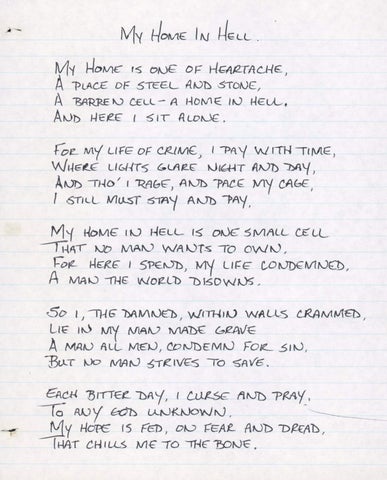 MY HOME IN HELL.
MY HOME IS ONE OF HEARTACHE,
A PLACE OF STEEL AND STONE,
A BARREN CELL - A HOME IN HELL.
AND HERE I SIT ALONE.
FOR MY LIFE OF CRIME, I PAY WITH TIME,
WHERE LIGHTS GLARE NIGHT AND DAY,
AND THO' I RAGE, AND PACE MY CAGE,
I STILL MUST STAY AND PAY.
MY HOME IN HELL IS ONE SMALL CELL
THAT NO MAN WANTS TO OWN.
FOR HERE I SPEND, MY LIFE CONDEMNED,
A MAN THE WORLD DISOWNS.
SO I, THE DAMNED, WITHIN WALLS CRAMMED,
LIE IN MY MAN MADE GRAVE
A MAN ALL MEN, CONDEMN FOR SIN.
BUT NO MAN STRIVES TO SAVE.
EACH BITTER DAY, I CURSE AND PRAY.
TO ANY GOD UNKNOWN.
MY HOPE IS FED, ON FEAR AND DREAD,
THAT CHILLS ME TO THE BONE.